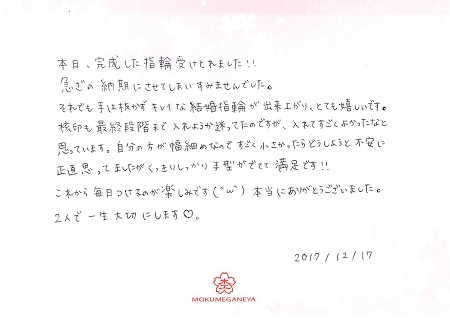 本日、完成した指輪受けとれました!!
急ぎの納期にさせてしまいすみませんでした。
それでも手は抜かずキレイな結婚指輪が出来上がり、とても嬉しいです。
桜印も最終段階まで入れようか迷ってたのですが、入れてすごくよかったなと
思っています。自分の方が幅細めなのですごく小さかったらどうしようと不安に
正直思ってましたがくっきりしっかり手型がでてて満足です!!
これから毎日つけるのが楽しみです(^ω^)本当にありがとうございました。
2人で一生大切にします♡。
2017/12/17
MOKUMEGANEYA